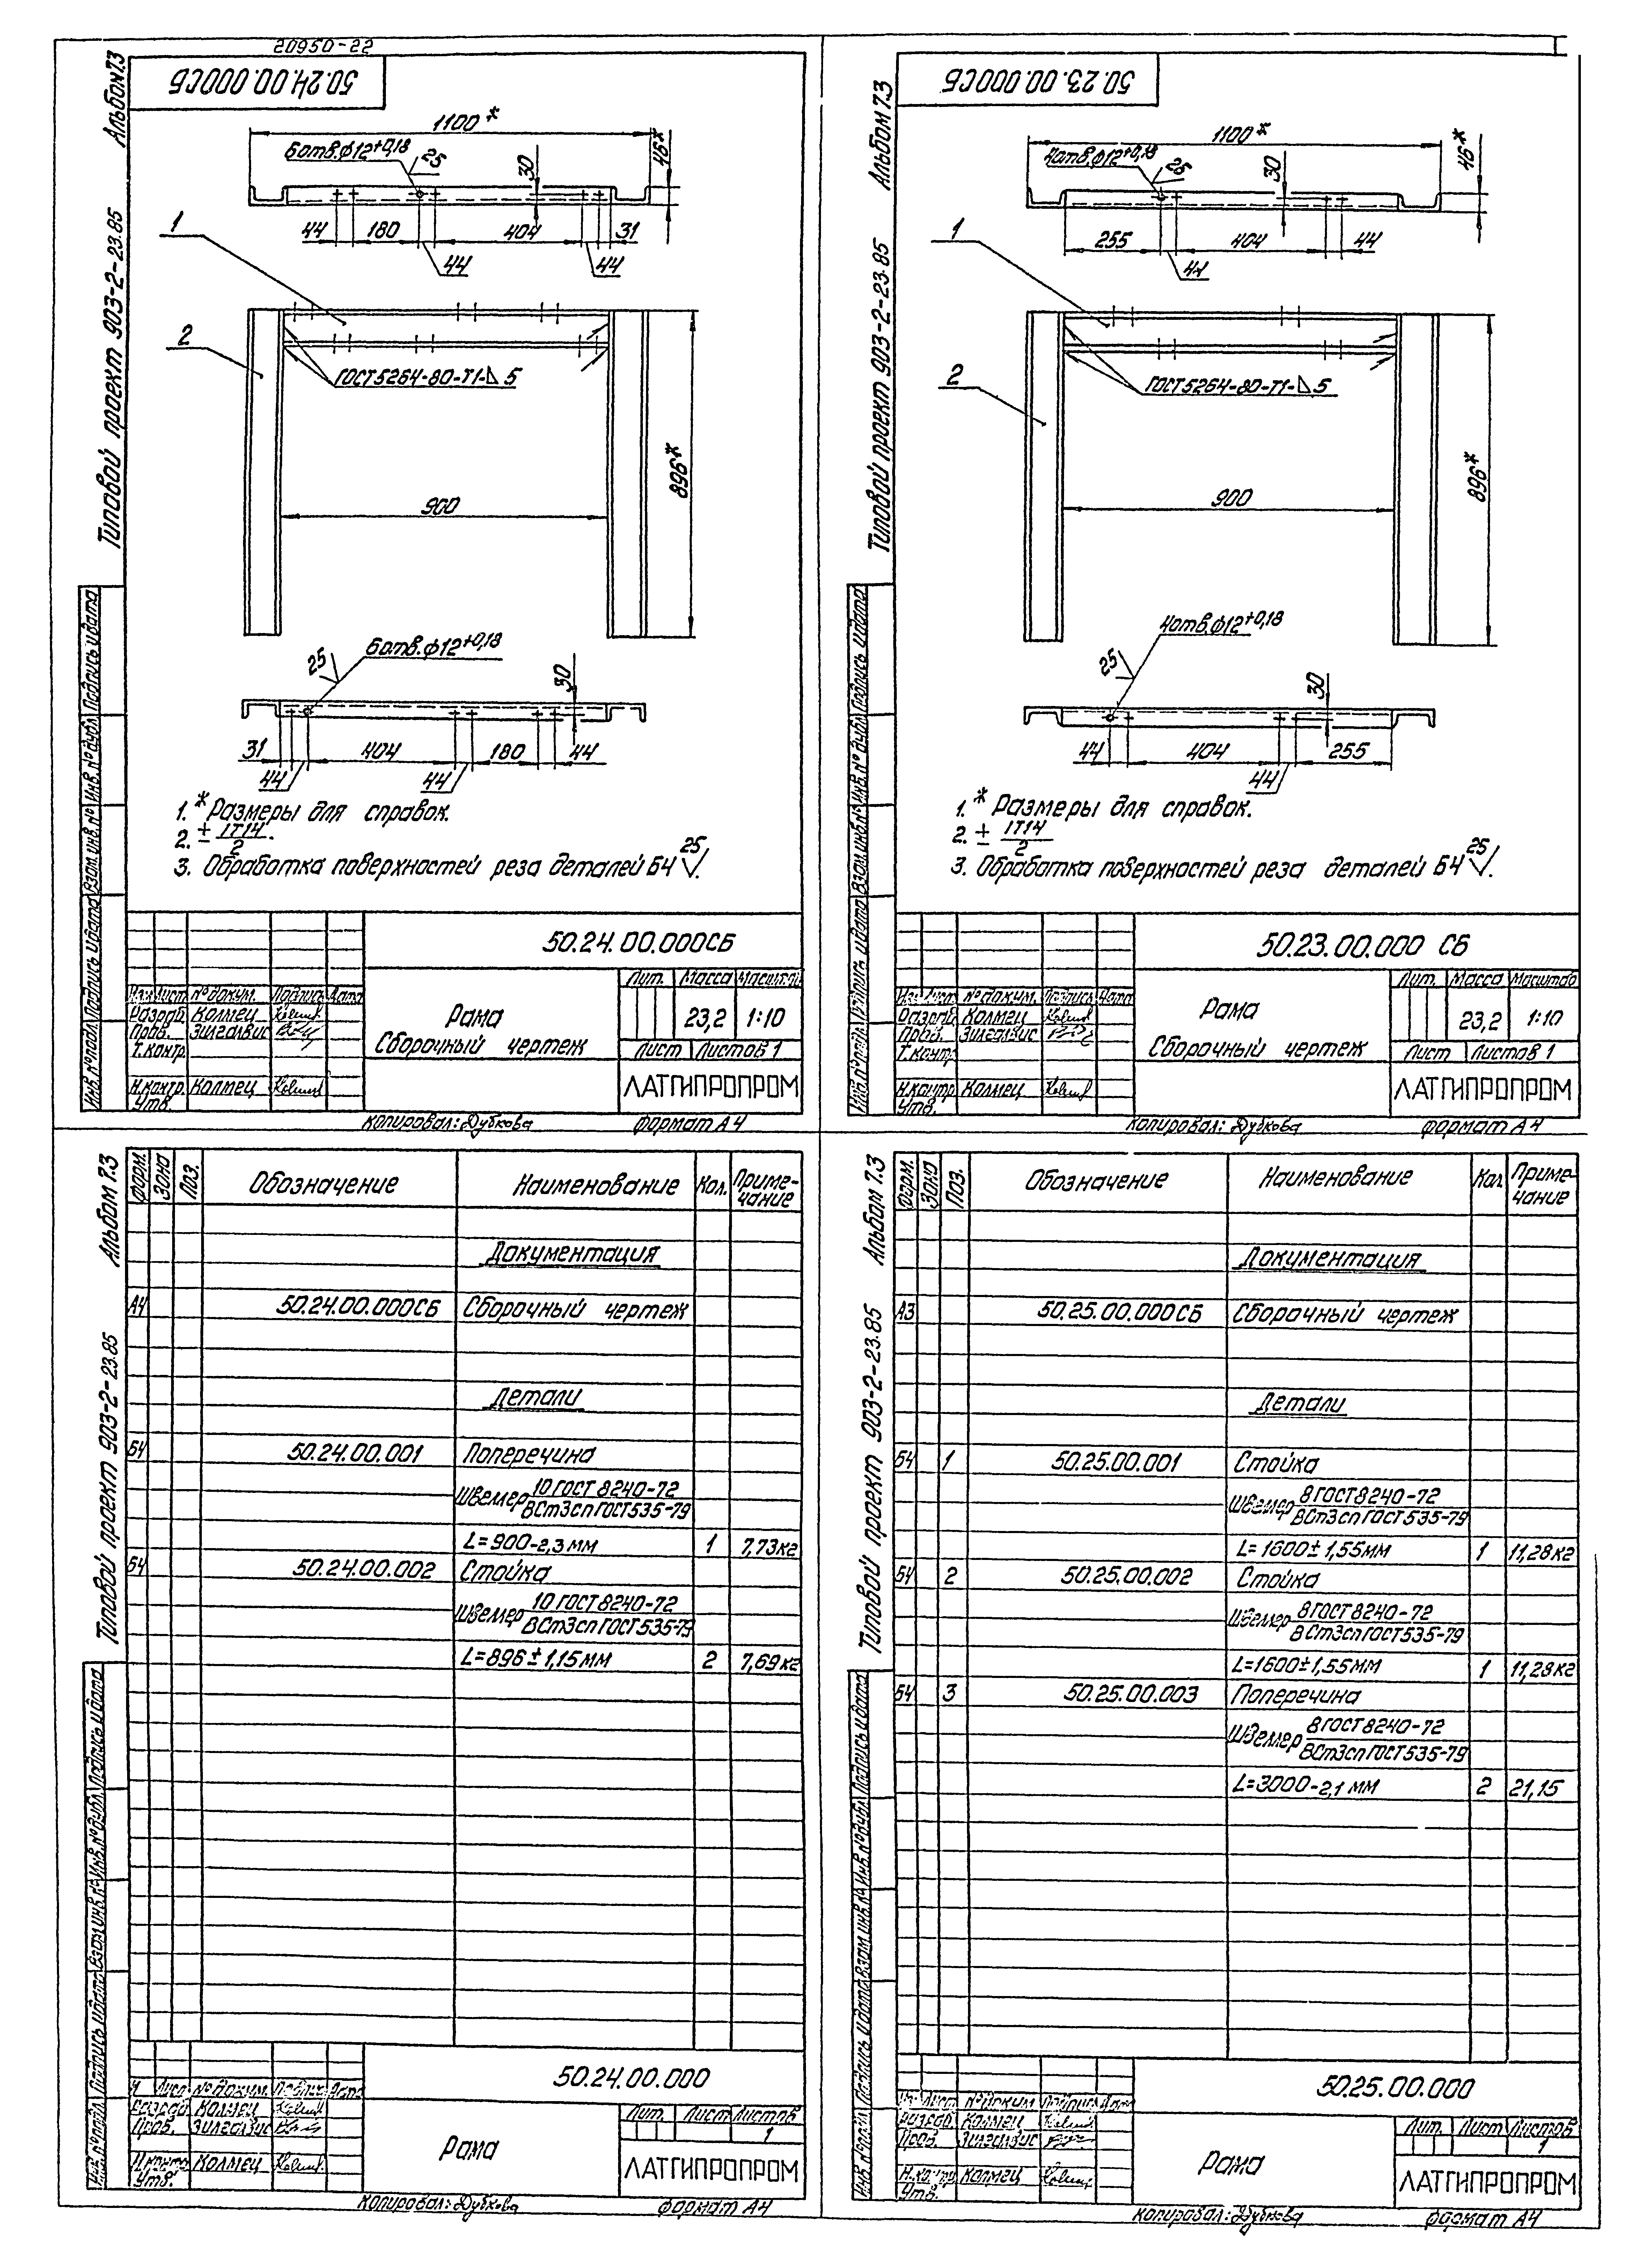 20950-22
Альбом 7.3
Типовой проект 903-2-23.85
50.24.00.000СБ
1100*
6 отв. ф12+0,18
25
30
46*
44
180
404
31
44
44
1
2
ГОСТ 5264-80-Т1-⊿5
896*
900
6 отв. ф12+0,18
25
30
31
404
180
44
44
44
1. * Размеры для справок.
2. ± IT14/2.
3. Обработка поверхностей реза деталей БЧ 25√.
50.24.00.000СБ
Рама
Сборочный чертеж
Лит. Масса Масштаб
23,2 1:10
Лист Листов 1
ЛАТГИПРОПРОМ
Изм. Лист № докум. Подпись Дата
Разраб. Колмец
Пров. Зилгалвис
Т.контр.
Н.контр. Колмец
Утв.
Инв.№подл. Подпись и дата Взам.инв.№ Инв.№дубл. Подпись и дата
Копировал: Дубкова
формат А4
Альбом 7.3
Типовой проект 903-2-23.85
50.23.00.000СБ
1100*
4 отв. ф12+0,18
25
30
46*
255
404
44
44
1
2
ГОСТ 5264-80-Т1-⊿5
896*
900
4 отв. ф12+0,18
25
30
44
404
255
44
1. * Размеры для справок.
2. ± IT14/2
3. Обработка поверхностей реза деталей БЧ 25√.
50.23.00.000 СБ
Рама
Сборочный чертеж
Лит. Масса Масштаб
23,2 1:10
Лист Листов 1
ЛАТГИПРОПРОМ
Изм. Лист № докум. Подпись Дата
Разраб. Колмец
Пров. Зилгалвис
Т.контр.
Н.контр. Колмец
Утв.
Инв.№подл. Подпись и дата Взам.инв.№ Инв.№дубл. Подпись и дата
Копировал: Дубкова
формат А4
Альбом 7.3
Типовой проект 903-2-23.85
Форм. Зона Поз. Обозначение Наименование Кол. Примечание
Документация
А4 50.24.00.000СБ Сборочный чертеж
Детали
БЧ 50.24.00.001 Поперечина
Швеллер 10 ГОСТ 8240-72
ВСт3сп ГОСТ 535-79
L=900-2,3 мм 1 7,73кг
БЧ 50.24.00.002 Стойка
Швеллер 10 ГОСТ 8240-72
ВСт3сп ГОСТ 535-79
L=896±1,15мм 2 7,69кг
50.24.00.000
Рама
Лит. Лист Листов
1
ЛАТГИПРОПРОМ
Лист № докум. Подпись Дата
Разраб. Колмец
Пров. Зилгалвис
Н.контр. Колмец
Утв.
Инв.№подл. Подпись и дата Взам.инв.№ Инв.№дубл. Подпись и дата
Копировал: Дубкова
формат А4
Альбом 7.3
Типовой проект 903-2-23.85
Форм. Зона Поз. Обозначение Наименование Кол. Примечание
Документация
А3 50.25.00.000СБ Сборочный чертеж
Детали
БЧ 1 50.25.00.001 Стойка
Швеллер 8 ГОСТ 8240-72
ВСт3сп ГОСТ 535-79
L=1600±1,55мм 1 11,28кг
БЧ 2 50.25.00.002 Стойка
Швеллер 8 ГОСТ 8240-72
ВСт3сп ГОСТ 535-79
L=1600±1,55мм 1 11,28кг
БЧ 3 50.25.00.003 Поперечина
Швеллер 8 ГОСТ 8240-72
ВСт3сп ГОСТ 535-79
L=3000-2,1 мм 2 21,15
50.25.00.000
Рама
Лит. Лист Листов
1
ЛАТГИПРОПРОМ
Изм. Лист № докум. Подпись Дата
Разраб. Колмец
Пров. Зилгалвис
Н.контр. Колмец
Утв.
Инв.№подл. Подпись и дата Взам.инв.№ Инв.№дубл. Подпись и дата
Копировал: Дубкова
формат А4